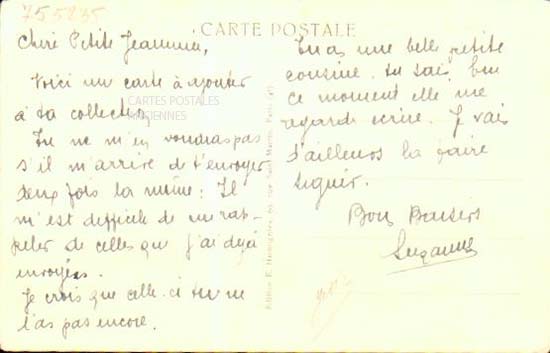 755835
CARTE POSTALE
Chère Petite Jeannine,
Voici un carte à ajouter
à ta collection
CARTES POSTALES
ANCIENNES
Tu ne m'en voudras pas
s'il m'arrive de t'envoyer
deux fois la même: Il
m'est difficile de me rap-
peler de celles que j'ai déjà
envoyées.
Je crois que celle-ci tu ne
l'as pas encore.
Tu as une belle petite
cousine, tu sais, En
ce moment elle me
regarde écrire. Je vais
d'ailleurs la faire
signer.
Bons Baisers
Suzanne